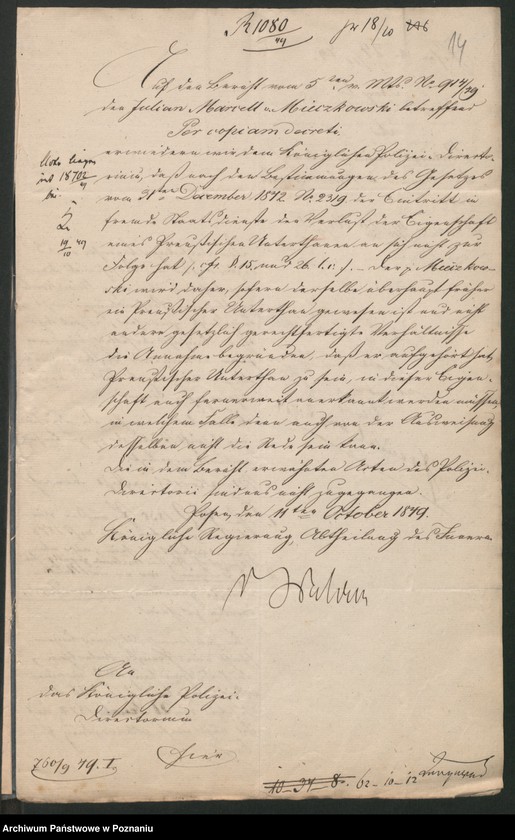 R 1080/49 pr 18/10
14
Auf den Bericht vom 5ten v. Mts. No 914/49
den Julian Marcell v. Mieczkowski betreffend
Per copiam decreti
erwiedern wir dem Königlichen Polizei-Directo-
rium, daß nach den Bestimmungen des Gesetzes
vom 31ten December 1842 No 2319 der Eintritt in
fremde Staatsdienste den Verlust der Eigenschaft
eines Preußischen Unterthanen an sich nicht zur
Folge hat /: cfr. § 15, und 26 l. c. :/ . Der p. Mieczkow-
ski wird daher, sofern derselbe überhaupt früher
ein Preußischer Unterthan gewesen ist und nicht
andere gesetzlich gerechtfertigte Verhältnisse
die Annahme begründen, daß er aufgehört hat,
Preußischer Unterthan zu sein, in dieser Eigen-
schaft auch fernerweit anerkannt werden müssen,
in welchem Falle denn auch von der Ausweisung
desselben nicht die Rede sein kann.
Die in dem Bericht erwähnten Acten des Polizei-
Directorii sind uns nicht zugegangen.
Posen, den 11ten October 1849.
Königliche Regierung, Abtheilung des Innern
An
das Königliche Polizei-
Directorium
hier
760/9 49. I.
10-37-8. 62-10-12
Archiwum Państwowe w Poznaniu